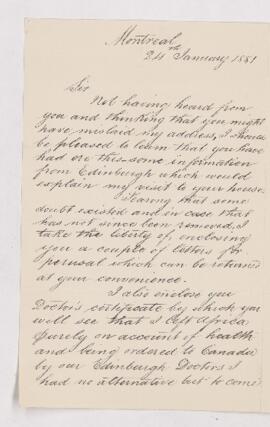 Montreal
24th January 1881
Sir
Not having heard from
you and thinking that you might
have mislaid my address, I should
be pleased to learn that you have
had ere this some information
from Edinburgh which would
explain my visit to your house.
Fearing that some
doubt existed and in case that
has not since been removed, I
take the liberty of enclosing
you a couple of letters for
perusal which can be returned
at your convenience.
I also enclose you
Doctor's certificate by which you
will see that I left Africa
purely on account of health
and being ordered to Canada
by our Edinburgh Doctors I
had no alternative but to come